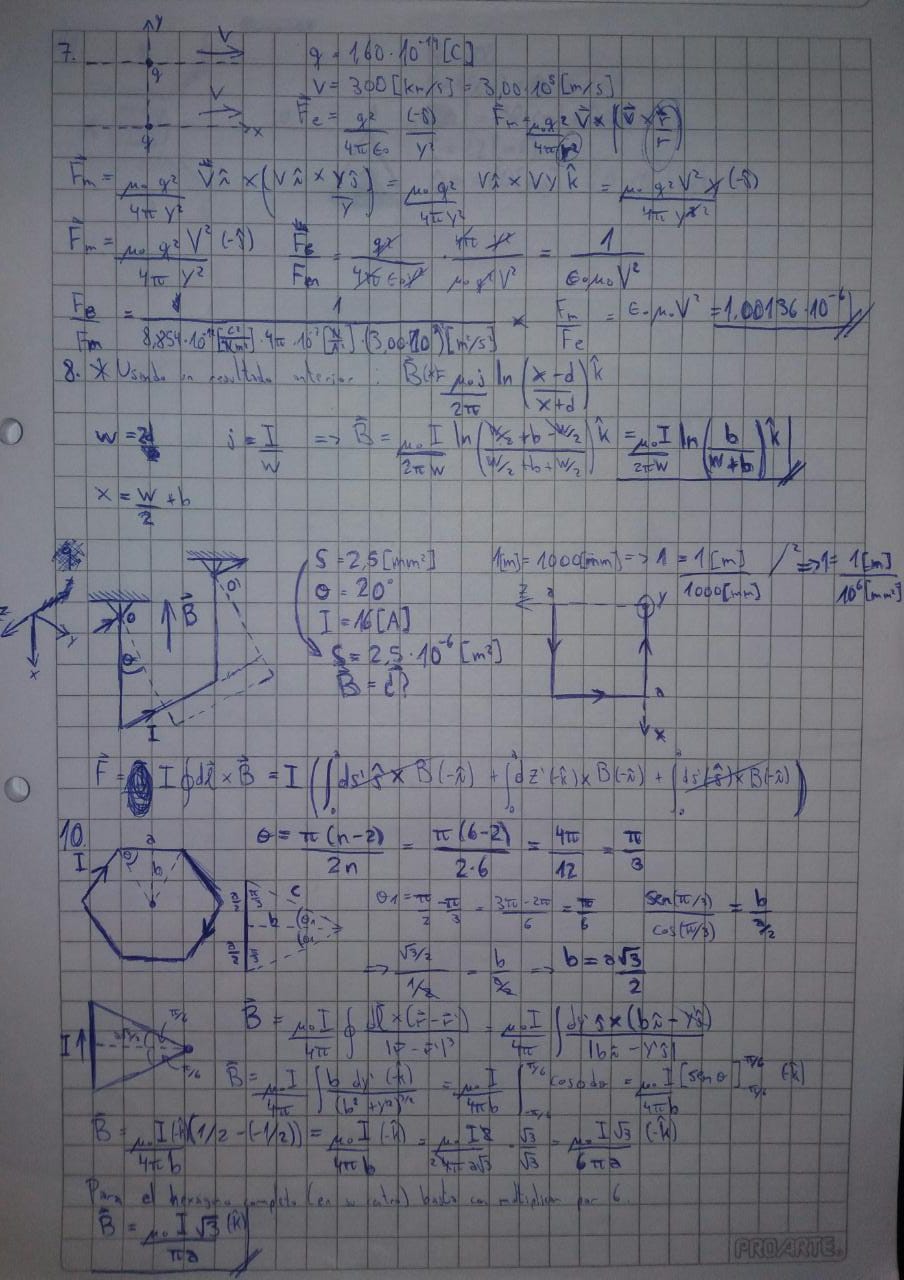 7. y V q = 1,60·10⁻¹⁹ [C]
q V = 300 [km/s] = 3,00·10⁵ [m/s]
V x q F⃗e = q²/(4πε₀) (-ĵ)/y² F⃗m = μ₀q²/(4πr²) V⃗ × (V⃗ × r⃗/r)
F⃗m = μ₀q²/(4πy²) V⃗î × (Vî × yĵ/y) = μ₀q²/(4πy²) Vî × Vy k̂ = μ₀q²V²y/(4πy²) (-ĵ)
F⃗m = μ₀q²V²/(4πy²) (-ĵ) Fe/Fm = q²/(4πε₀y²) · 4πy²/(μ₀q²V²) = 1/(ε₀μ₀V²)
Fe/Fm = 1/(8,854·10⁻¹² [C²/Nm²] · 4π·10⁻⁷ [N/A²] · (3,00·10⁵)² [m²/s²]) Fm/Fe = ε₀μ₀V² = 1,00136·10⁻⁶
8. * Usando un resultado anterior: B⃗ = μ₀j/2π ln((x-d)/(x+d)) k̂
w = 2d j = I/w => B⃗ = μ₀I/(2πw) ln((w/2+b-w/2)/(w/2+b+w/2)) k̂ = μ₀I/(2πw) ln(b/(w+b)) k̂
x = w/2 + b
9. S = 2,5 [mm²] 1[m] = 1000[mm] => 1 = 1[m]/1000[mm] /² => 1 = 1[m]/10⁶[mm²]
θ = 20°
I = 16 [A]
S = 2,5·10⁻⁶ [m²]
B = ¿?
z x B⃗ θ I z a y a x
F⃗ = I∮dl⃗ × B⃗ = I(∫₀ᵃ ds' ĵ × B(-î) + ∫₀ᵃ dz'(-k̂) × B(-î) + ∫₀ᵃ ds'(ĵ) × B(-î))
10. θ = π(n-2)/2n = π(6-2)/2·6 = 4π/12 = π/3
I a θ b a/2 a/2 π/3 π/3 b c θ₁ θ₁ θ₁ = π/2 - π/3 = (3π-2π)/6 = π/6 sen(π/3)/cos(π/3) = b/(a/2)
=> (√3/2)/(1/2) = b/(a/2) => b = a√3/2
I a√3/2 π/6 π/6 B⃗ = μ₀I/4π ∮ dl⃗ × (r⃗ - r⃗')/|r⃗ - r⃗'|³ = μ₀I/4π ∫ dy' ĵ × (bî - y'ĵ)/|bî - y'ĵ|
B⃗ = μ₀I/4π ∫ b dy' (-k̂)/(b² + y'²)^(3/2) = μ₀I/4πb ∫ cosθ dθ = μ₀I/4πb [senθ] π/6 -π/6 (-k̂)
B⃗ = μ₀I/4πb (-k̂)(1/2 - (-1/2)) = μ₀I/4πb (-k̂) = μ₀I2/4πa√3 · √3/√3 = μ₀I√3/6πa (-k̂)
Para el hexagono completo (en su centro) basta con multiplicar por 6.
B⃗ = μ₀I√3/πa (k̂)
PROARTE